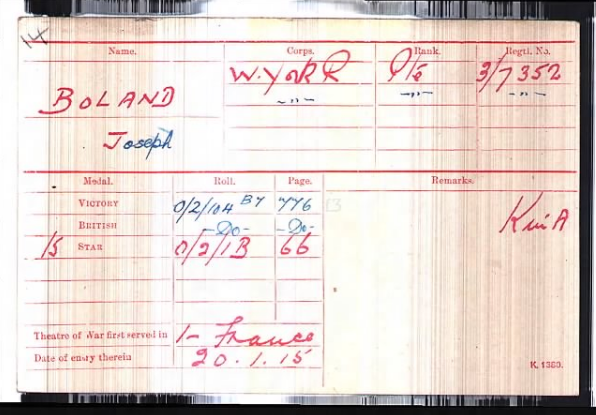 14
Name. Corps. Rank. Regtl. No.
BOLAND W. York R Pte 3/7352
Joseph -"- -"- -"-
Medal. Roll. Page. Remarks.
VICTORY O/2/104 B7 776
BRITISH -Do- -Do- K in A
15 STAR O/2/1B 66
Theatre of War first served in 1- France
Date of entry therein 20.1.15
K. 1380.